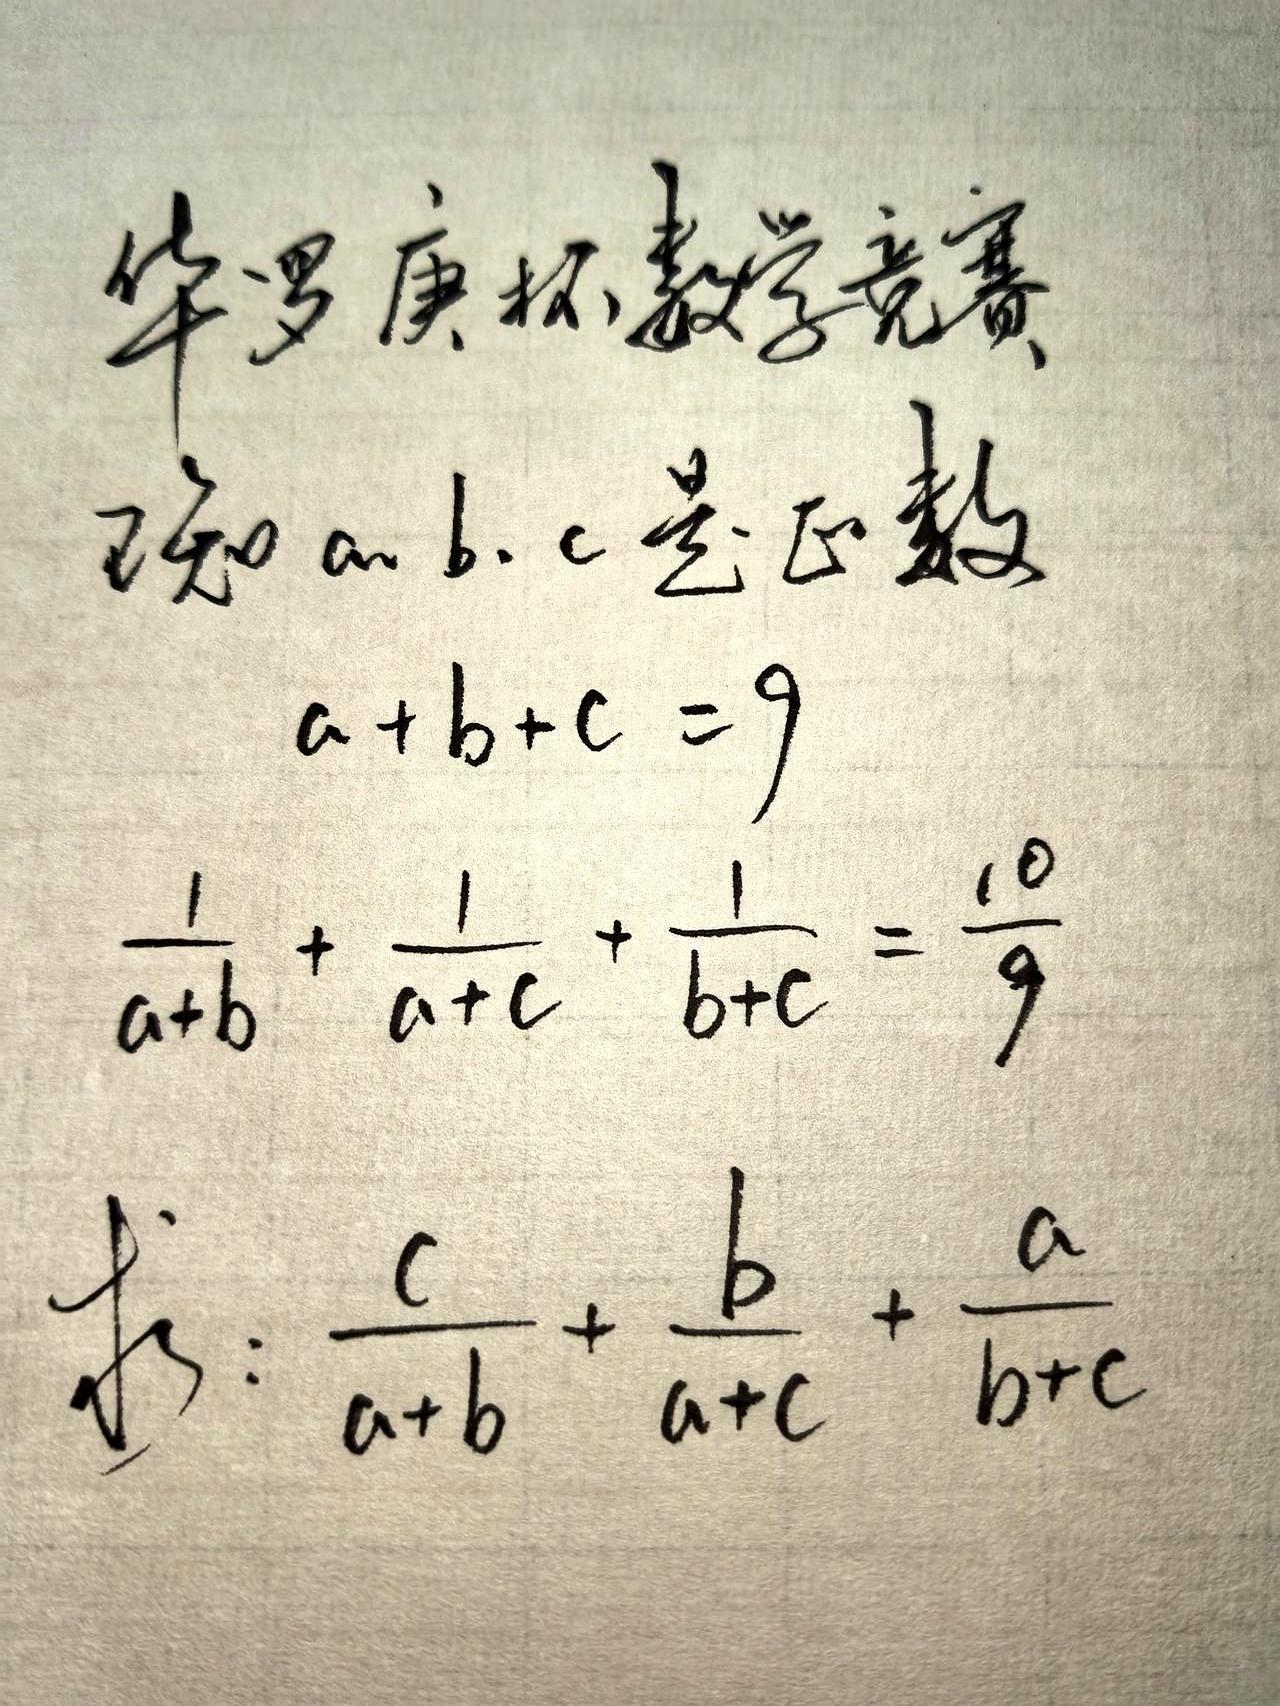 华罗庚杯数学竞赛
现知a、b、c是正数
a+b+c=9
1/(a+b) + 1/(a+c) + 1/(b+c) = 10/9
求: c/(a+b) + b/(a+c) + a/(b+c)